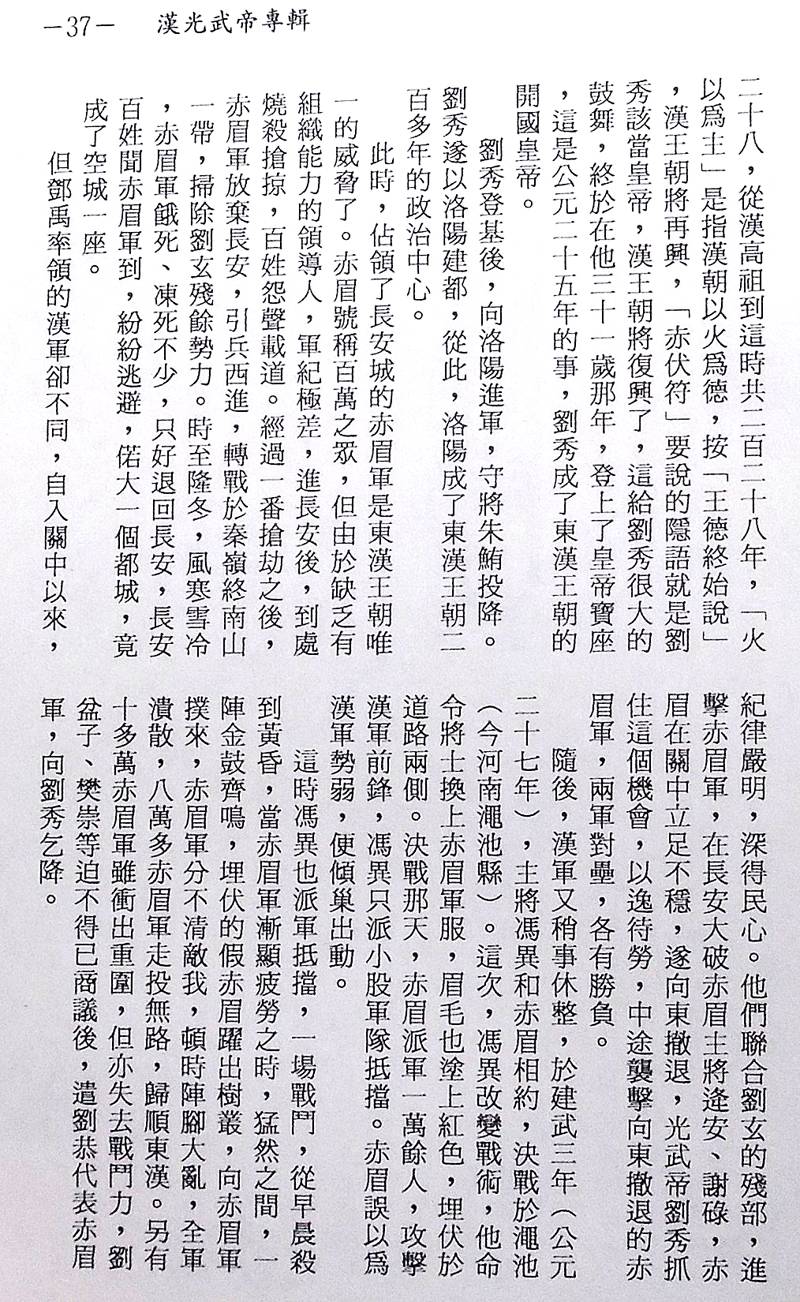 －37－　漢光武帝專輯
二十八，從漢高祖到這時共二百二十八年，「火
以爲主」是指漢朝以火爲德，按「王德終始說」
，漢王朝將再興，「赤伏符」要說的隱語就是劉
秀該當皇帝，漢王朝將復興了，這給劉秀很大的
鼓舞，終於在他三十一歲那年，登上了皇帝寶座
，這是公元二十五年的事，劉秀成了東漢王朝的
開國皇帝。
劉秀登基後，向洛陽進軍，守將朱鮪投降。
劉秀遂以洛陽建都，從此，洛陽成了東漢王朝二
百多年的政治中心。
此時，佔領了長安城的赤眉軍是東漢王朝唯
一的威脅了。赤眉號稱百萬之眾，但由於缺乏有
組織能力的領導人，軍紀極差，進長安後，到處
燒殺搶掠，百姓怨聲載道。經過一番搶劫之後，
赤眉軍放棄長安，引兵西進，轉戰於秦嶺終南山
一帶，掃除劉玄殘餘勢力。時至隆冬，風寒雪冷
，赤眉軍餓死、凍死不少，只好退回長安，長安
百姓聞赤眉軍到，紛紛逃避，偌大一個都城，竟
成了空城一座。
但鄧禹率領的漢軍卻不同，自入關中以來，
紀律嚴明，深得民心。他們聯合劉玄的殘部，進
擊赤眉軍，在長安大破赤眉主將逄安、謝碌，赤
眉在關中立足不穩，遂向東撤退，光武帝劉秀抓
住這個機會，以逸待勞，中途襲擊向東撤退的赤
眉軍，兩軍對壘，各有勝負。
隨後，漢軍又稍事休整，於建武三年（公元
二十七年），主將馮異和赤眉相約，決戰於澠池
（今河南澠池縣）。這次，馮異改變戰術，他命
令將士換上赤眉軍服，眉毛也塗上紅色，埋伏於
道路兩側。決戰那天，赤眉派軍一萬餘人，攻擊
漢軍前鋒，馮異只派小股軍隊抵擋。赤眉誤以爲
漢軍勢弱，便傾巢出動。
這時馮異也派軍抵擋，一場戰鬥，從早晨殺
到黃昏，當赤眉軍漸顯疲勞之時，猛然之間，一
陣金鼓齊鳴，埋伏的假赤眉躍出樹叢，向赤眉軍
撲來，赤眉軍分不清敵我，頓時陣腳大亂，全軍
潰散，八萬多赤眉軍走投無路，歸順東漢。另有
十多萬赤眉軍雖衝出重圍，但亦失去戰鬥力，劉
盆子、樊崇等迫不得已商議後，遣劉恭代表赤眉
軍，向劉秀乞降。